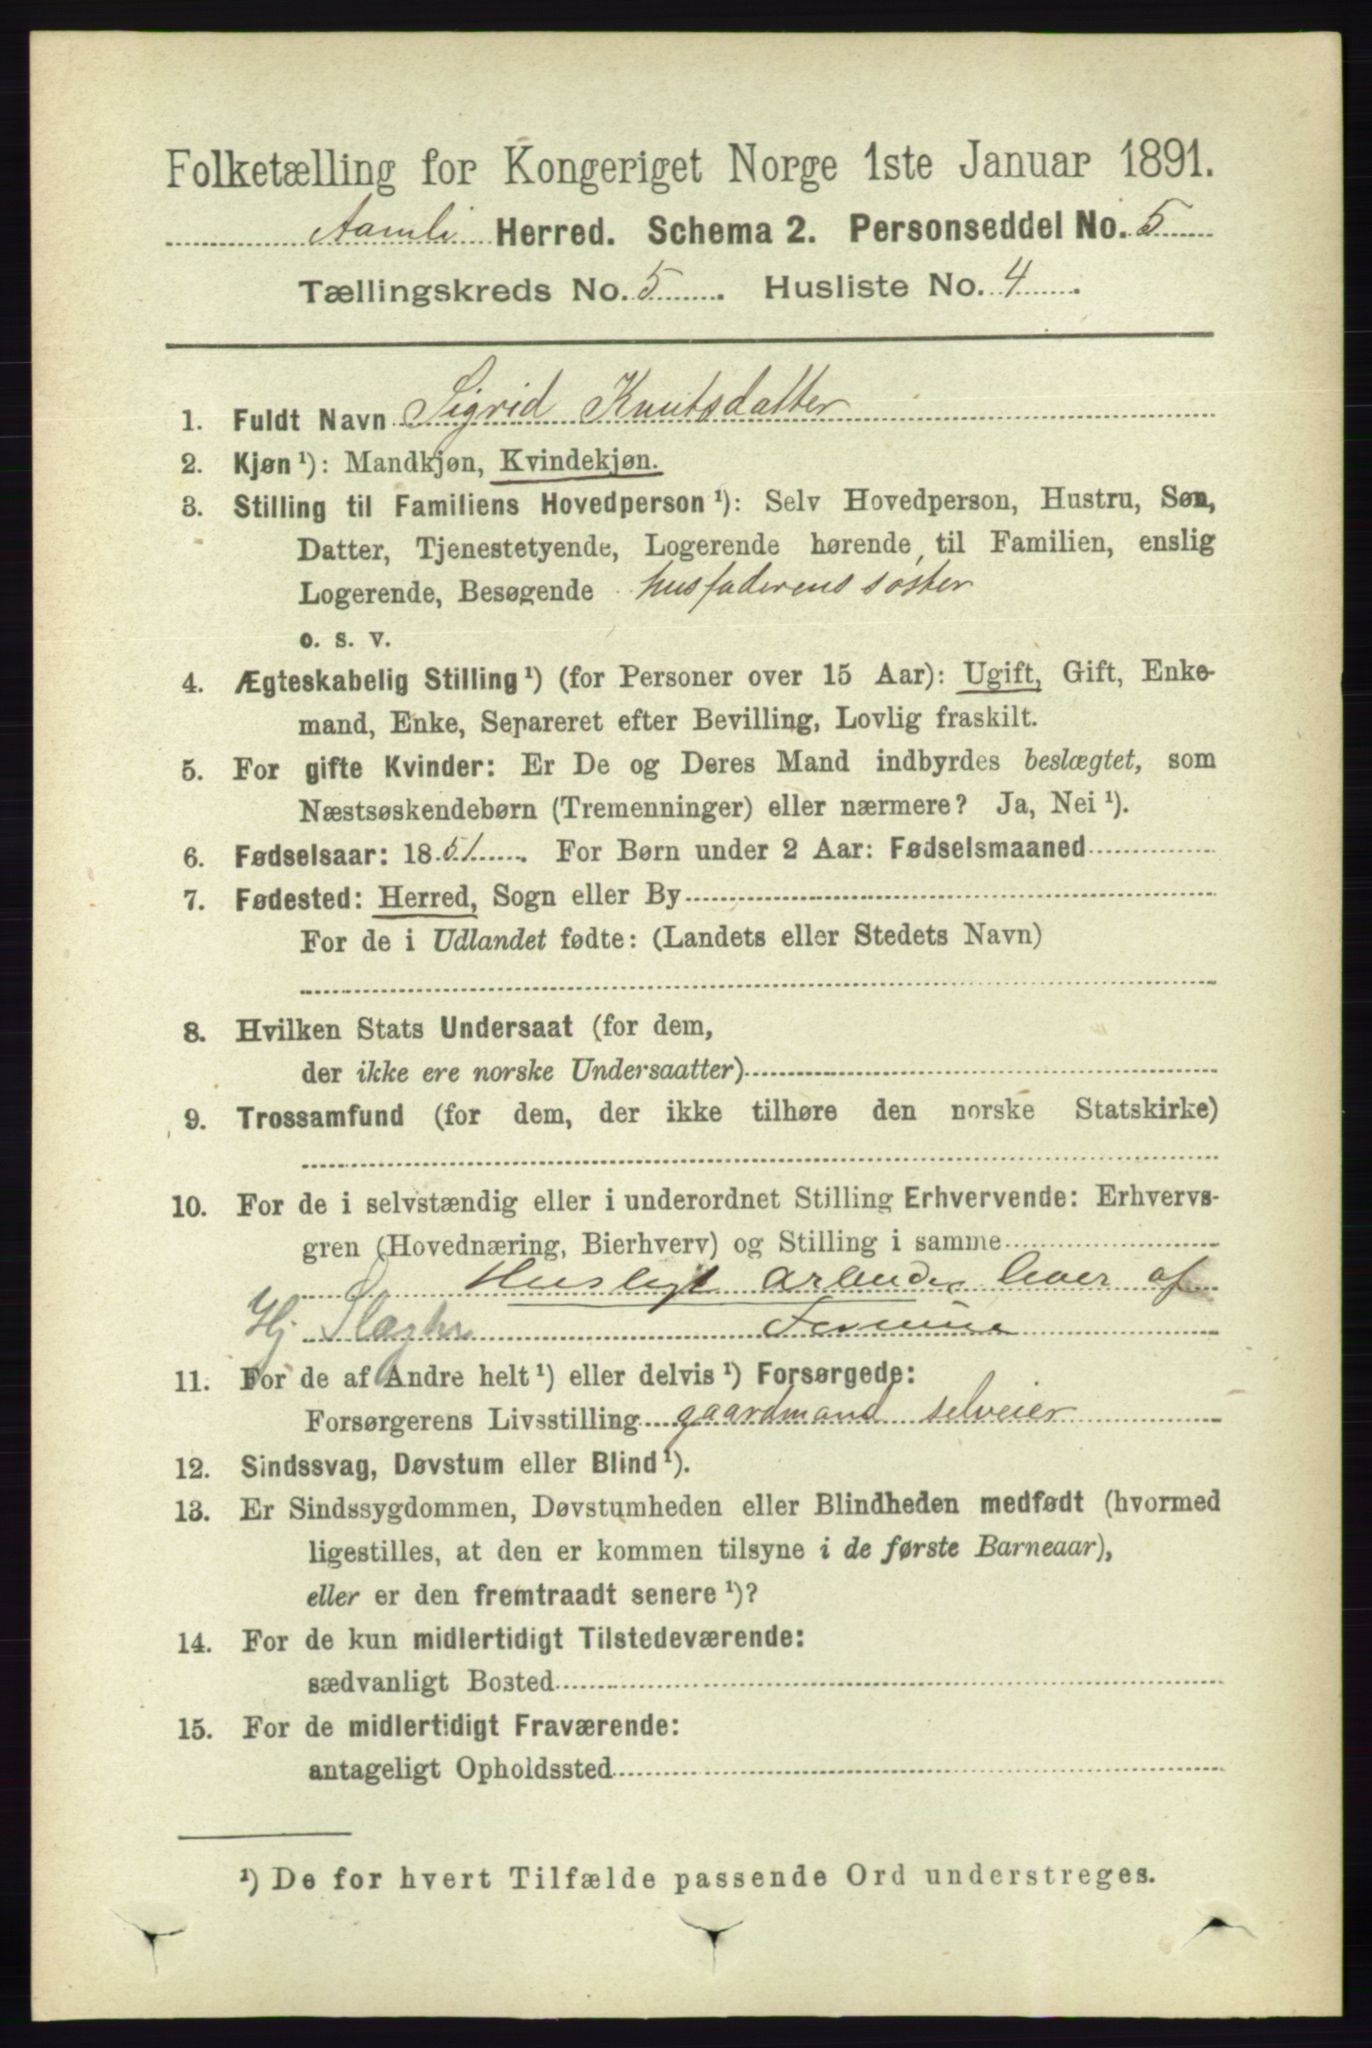 Folketælling for Kongeriget Norge 1ste Januar 1891.
Aamli Herred. Schema 2. Personseddel No. 5
Tællingskreds No. 5. Husliste No. 4.
1. Fuldt Navn Sigrid Knutsdatter
2. Kjøn ¹): Mandkjøn, Kvindekjøn.
3. Stilling til Familiens Hovedperson ¹): Selv Hovedperson, Hustru, Søn,
Datter, Tjenestetyende, Logerende hørende til Familien, enslig
Logerende, Besøgende husfaderens søster
o. s. v.
4. Ægteskabelig Stilling ¹) (for Personer over 15 Aar): Ugift, Gift, Enke-
mand, Enke, Separeret efter Bevilling, Lovlig fraskilt.
5. For gifte Kvinder: Er De og Deres Mand indbyrdes beslægtet, som
Næstsøskendebørn (Tremenninger) eller nærmere? Ja, Nei ¹).
6. Fødselsaar: 1851. For Børn under 2 Aar: Fødselsmaaned
7. Fødested: Herred, Sogn eller By
For de i Udlandet fødte: (Landets eller Stedets Navn)
8. Hvilken Stats Undersaat (for dem,
der ikke ere norske Undersaatter)
9. Trossamfund (for dem, der ikke tilhøre den norske Statskirke)
10. For de i selvstændig eller i underordnet Stilling Erhvervende: Erhvervs-
gren (Hovednæring, Bierhverv) og Stilling i samme
Husligt lever af
Hj
11. For de af Andre helt ¹) eller delvis ¹) Forsørgede:
Forsørgerens Livsstilling gaardmand selveier
12. Sindssvag, Døvstum eller Blind ¹).
13. Er Sindssygdommen, Døvstumheden eller Blindheden medfødt (hvormed
ligestilles, at den er kommen tilsyne i de første Barneaar),
eller er den fremtraadt senere ¹)?
14. For de kun midlertidigt Tilstedeværende:
sædvanligt Bosted
15. For de midlertidigt Fraværende:
antageligt Opholdssted
¹) De for hvert Tilfælde passende Ord understreges.